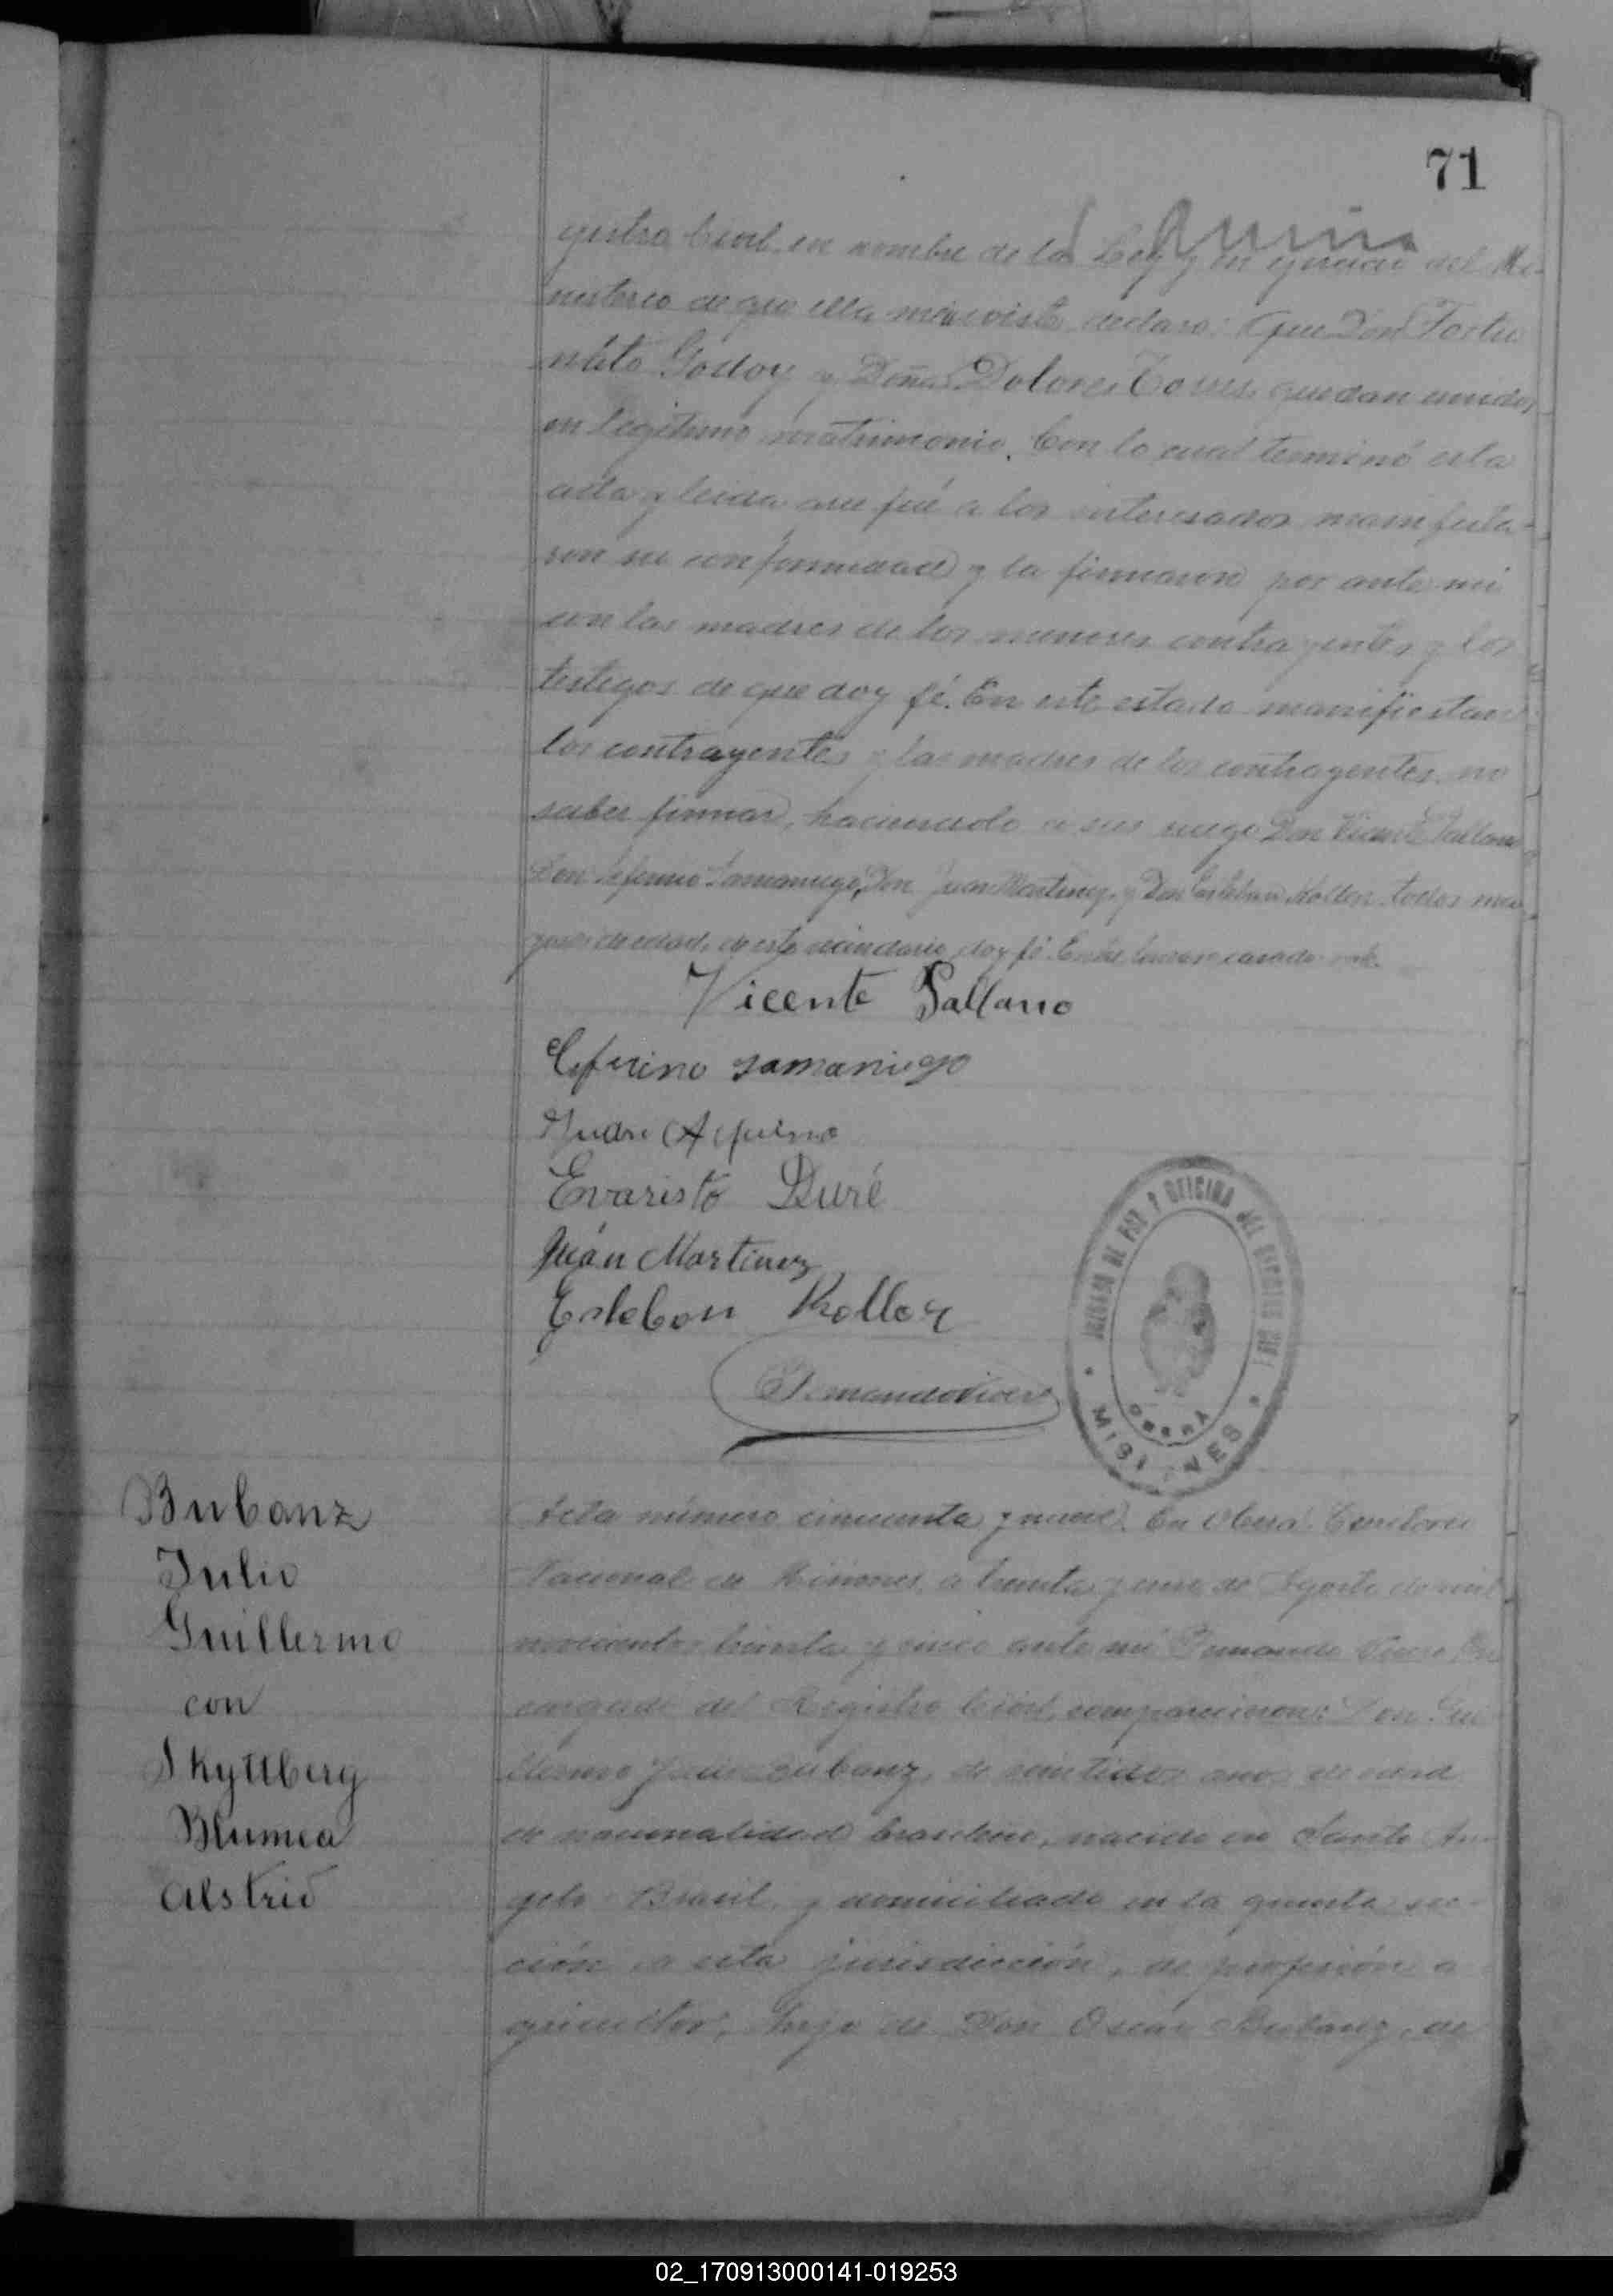 71
gistro Civil, en nombre de la Ley y en del Mi-
nisterio de que ella me inviste declaro: Que Don Fortu
nato Godoy y Doña Dolores Torres, quedan unidos
en legitimo matrimonio. Con lo cual terminó esta
acta y leida que fué a los interesados manifesta-
ron su conformidad y la firmaron por ante mi
con las madres de los menores contrayentes y los
testigos de que doy fé. En este estado manifiestan
los contrayentes y las madres de los contrayentes no
saber firmar, haciendolo a sus ruego Don Vicente Pallano
Don Ceferino Samaniego, Don Juan Martinez, y Don Esteban Koller todos ma
yores de edad, de este vecindario, doy fé.
Vicente Pallano
Ceferino Samaniego
Juan Aquino
Evaristo Duré
Juán Martinez
Esteban Koller
JUZGADO DE PAZ Y OFICINA DEL REGISTRO CIVIL
OBERA
MISIONES
Bubanz
Julio
Guillermo
con
Skyttberg
Blumea
Alstrid
Acta número cincuenta y nueve. En Obera Territorio
Nacional de Misiones, a treinta y uno de Agosto de mil
novecientos treinta y cinco ante mi Fernando En
cargado del Registro Civil, comparecieron: Don Gui
llermo Julio Bubanz, de veintidos anos de edad
de nacionalidad brasilero, nacido en Santo An-
gelo Brasil, y domiciliado en la quinta sec-
ción de esta jurisdicción, de profesión a
gricultor, hijo de Don Oscar Bubanz, de
02_170913000141-019253